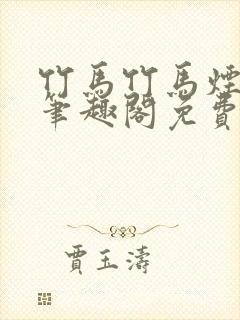 竹馬竹馬煙
筆趣閣免費
賈玉濤